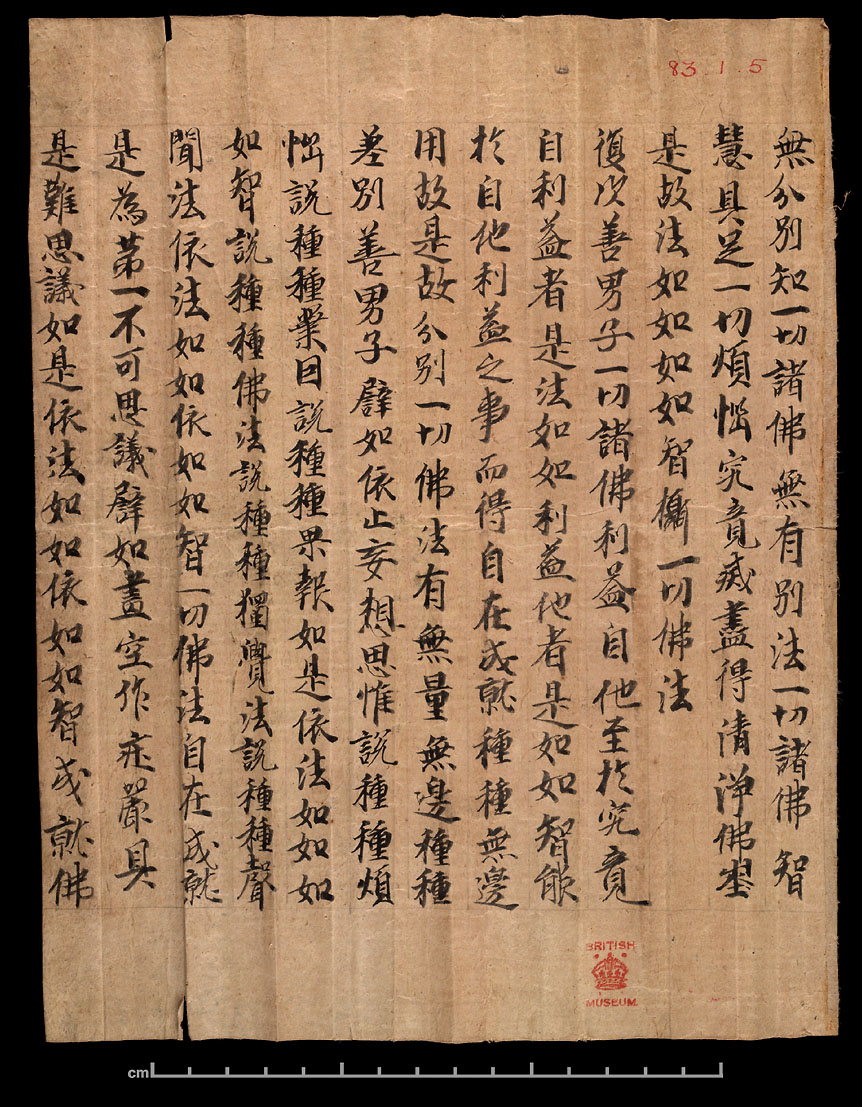 83.1.5
無分別知一切諸佛無有別法一切諸佛智
慧具足一切煩惱究竟滅盡得清淨佛地
是故法如如如如智攝一切佛法
復次善男子一切諸佛利益自他至於究竟
自利益者是法如如利益他者是如如智能
於自他利益之事而得自在成就種種無邊
用故是故分別一切佛法有無量無邊種種
差別善男子譬如依止妄想思惟說種種煩
惱說種種業因說種種果報如是依法如如如
如智說種種佛法說種種獨覺法說種種聲
聞法依法如如依如如智一切佛法自在成就
是為第一不可思議譬如畫空作庄嚴具
是難思議如是依法如如依如如智成就佛
BRITISH
MUSEUM
cm